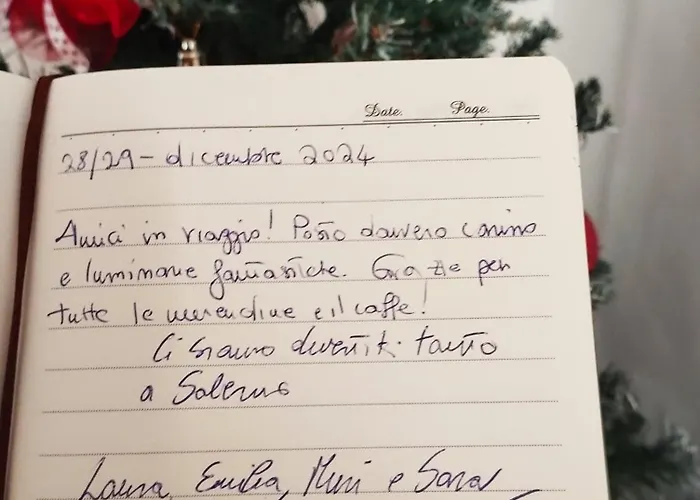 Date. Page.
28/29 - dicembre 2024
Amici in viaggio! Posto davvero carino
e luminarie fantastiche. Grazie per
tutte le merendine e il caffe!
Ci siamo divertiti tanto
a Salerno
Laura, Emilia, Mimi e Sara